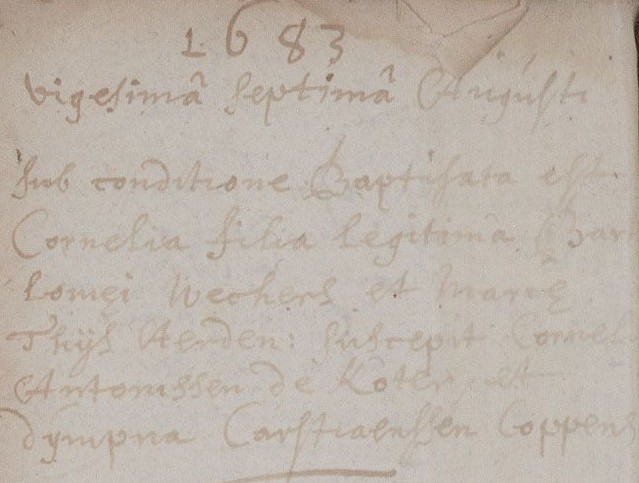 1683
vigesimâ septimâ Augusti
sub conditione Baptisata est
Cornelia filia legitima Bar
lomęi Wechers et Marię
Thijs Aerden: suscepit Cornel
Antonissen de Koter et
dympna Carstiaenssen Coppens